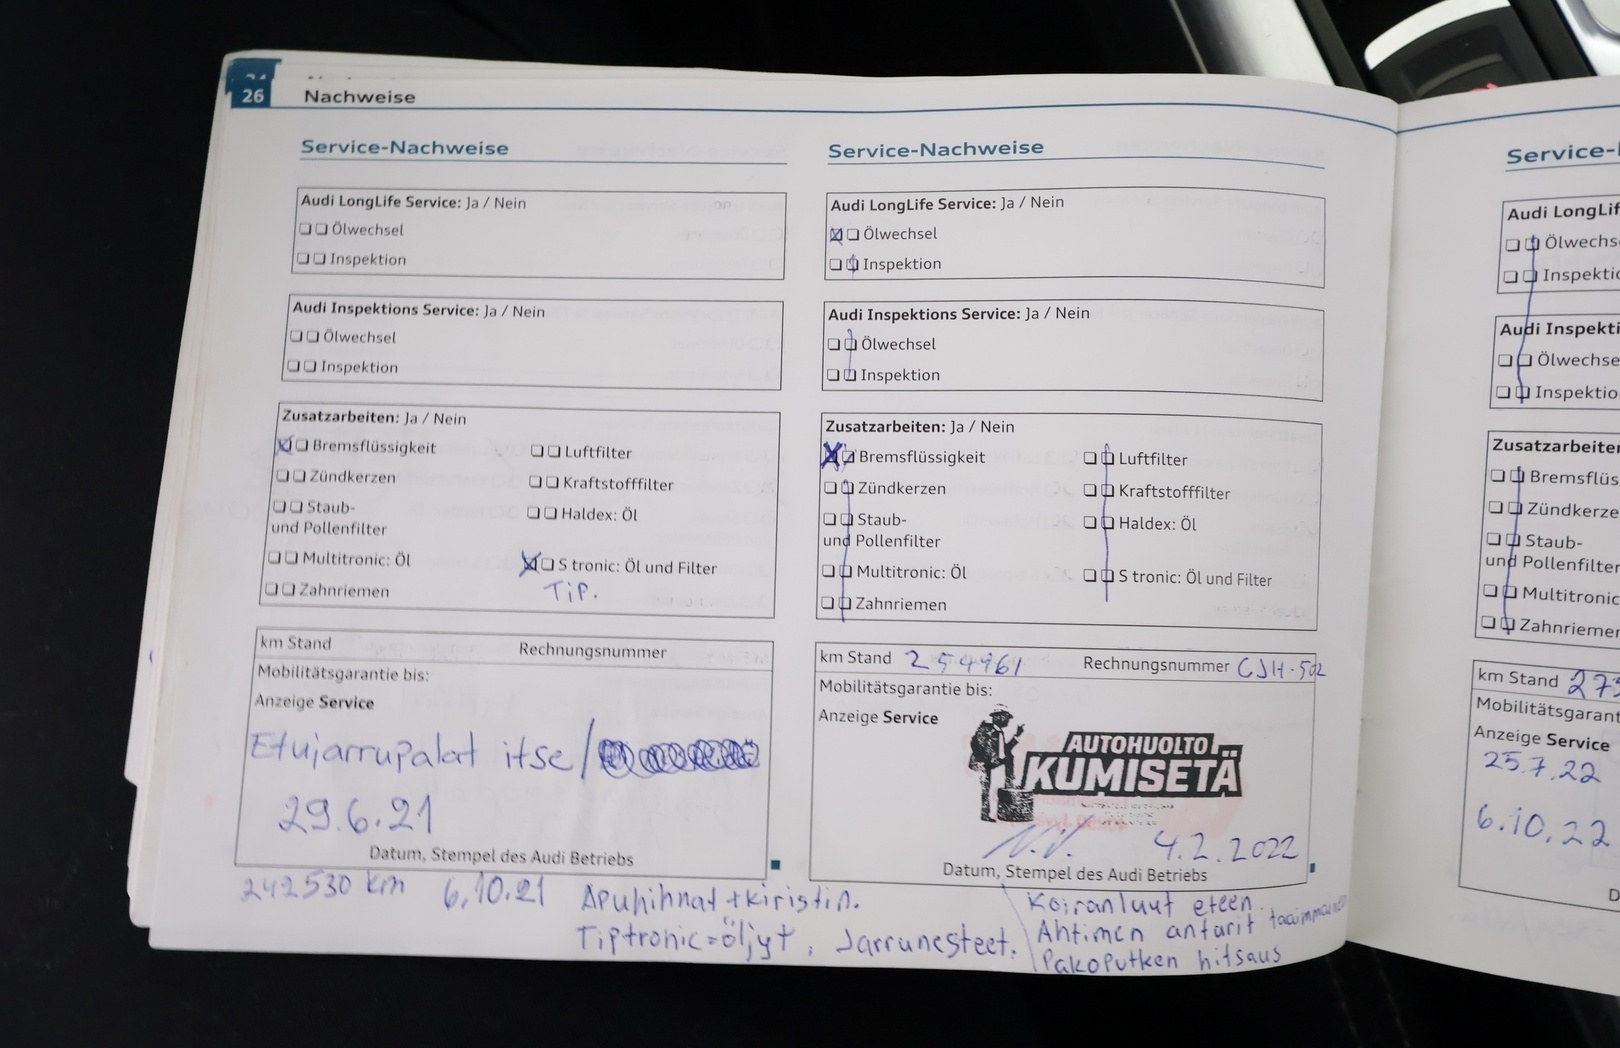 26 Nachweise
Service-Nachweise
Audi LongLife Service: Ja / Nein
Ölwechsel
Inspektion
Audi Inspektions Service: Ja / Nein
Ölwechsel
Inspektion
Zusatzarbeiten: Ja / Nein
Bremsflüssigkeit
Zündkerzen
Staub-
und Pollenfilter
Multitronic: Öl
Zahnriemen
Luftfilter
Kraftstofffilter
Haldex: Öl
S tronic: Öl und Filter
TiP.
km Stand Rechnungsnummer
Mobilitätsgarantie bis:
Anzeige Service
Etujarrupalat itse/
29.6.21
Datum, Stempel des Audi Betriebs
242530 km 6.10.21 Apuhihnat + kiristin.
Tiptronic=öljyt, Jarrunesteet.
Service-Nachweise
Audi LongLife Service: Ja / Nein
Ölwechsel
Inspektion
Audi Inspektions Service: Ja / Nein
Ölwechsel
Inspektion
Zusatzarbeiten: Ja / Nein
Bremsflüssigkeit
Zündkerzen
Staub-
und Pollenfilter
Multitronic: Öl
Zahnriemen
Luftfilter
Kraftstofffilter
Haldex: Öl
S tronic: Öl und Filter
km Stand 254961 Rechnungsnummer CJH-502
Mobilitätsgarantie bis:
Anzeige Service
AUTOHUOLTO
KUMISETÄ
4.2.2022
Datum, Stempel des Audi Betriebs
Koiranluut eteen.
Ahtimen anturit
Pakoputken hitsaus
Service-
Audi LongLif
Ölwechs
Inspektio
Audi Inspekti
Ölwechse
Inspektio
Zusatzarbeiten
Bremsflüs
Zündkerze
Staub-
und Pollenfilter
Multitronic
Zahnriemen
km Stand 27
Mobilitätsgarant
Anzeige Service
25.7.22
6.10.22
D